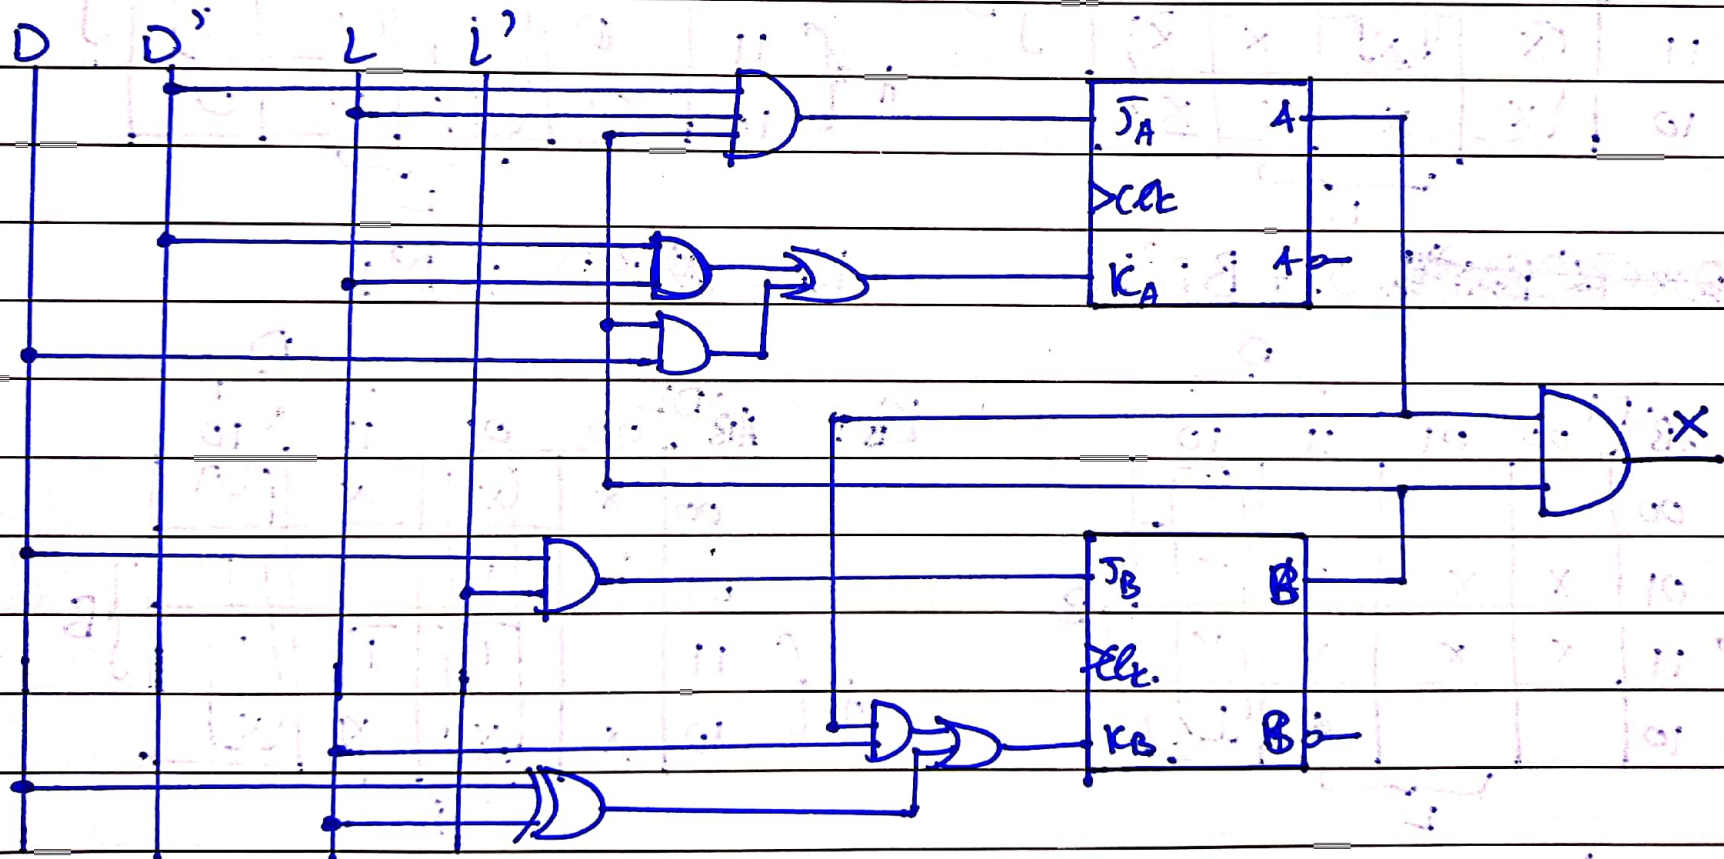 D D' L L'
J_A A
>Clk
K_A A
X
J_B B
>Clk.
K_B B